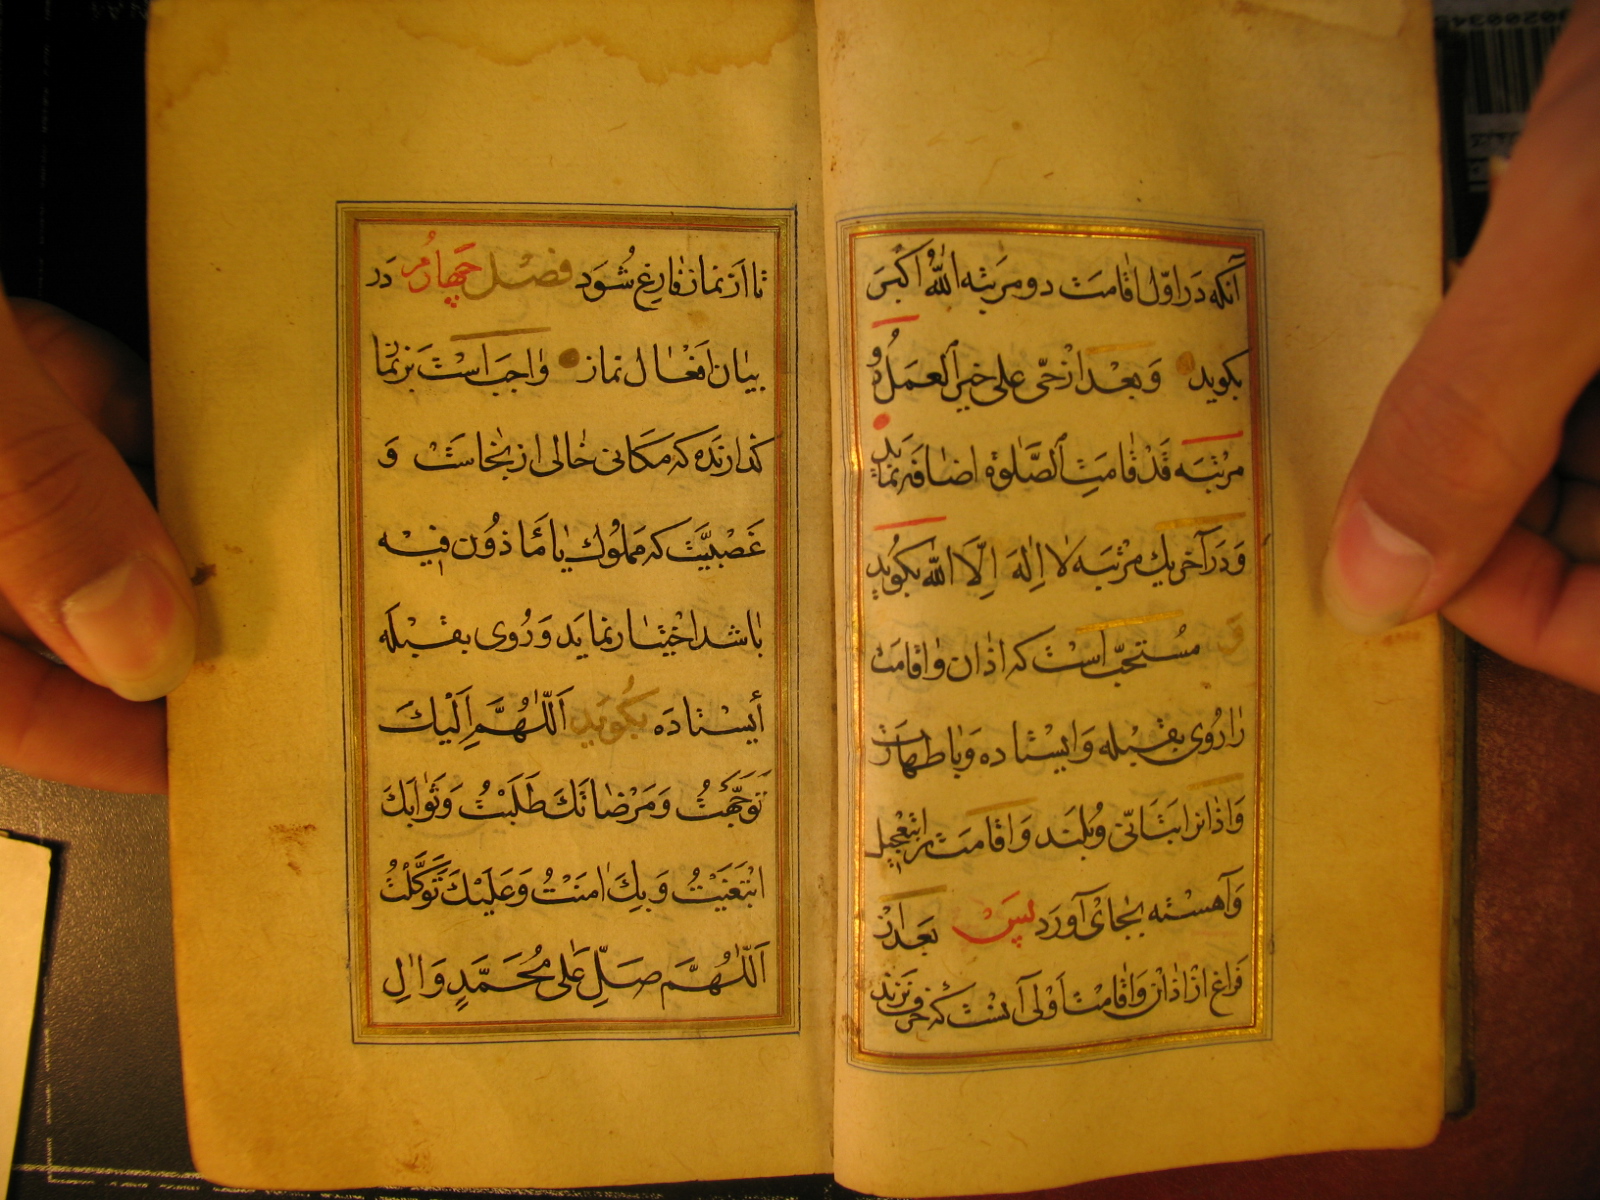 آنکه در اوّل اقامت دو مرتبه اللّٰه اکبر
بکوید وبعد از حیّ علی خیر العمل دو
مرتبه قد قامت الصّلوة اضافه نماید
و در آخر یك مرتبه لا اله الّا اللّٰه بکوید
و مستحبّ است که اذان واقامت
را روی بقبله وایستاده وبا طهارت
واذانرا بتأنّی وبلند واقامت را بتعجیل
وآهسته بجای آورد پس بعد از
فراغ از اذان واقامت اولی آنست که حرف نزند
تا از نماز فارغ شود فصل چهارم در
بیان افعال نماز واجب است بر نماز
کذارنده که مکانی خالی از نجاست و
غصبیّت که مملوك یا مأذون فیه
باشد اختیار نماید وروی بقبله
أیستاده بکوید اَللّٰهُمَّ اِلَیْكَ
تَوَجَّهْتُ وَمَرْضاتَكَ طَلَبْتُ وَثَوٰابَكَ
ابْتَغَیْتُ وَبِكَ اٰمَنْتُ وَعَلَیْكَ تَوَکَّلْتُ
اَللّٰهُمَّ صَلِّ عَلٰی مُحَمَّدٍ وَاٰلِ